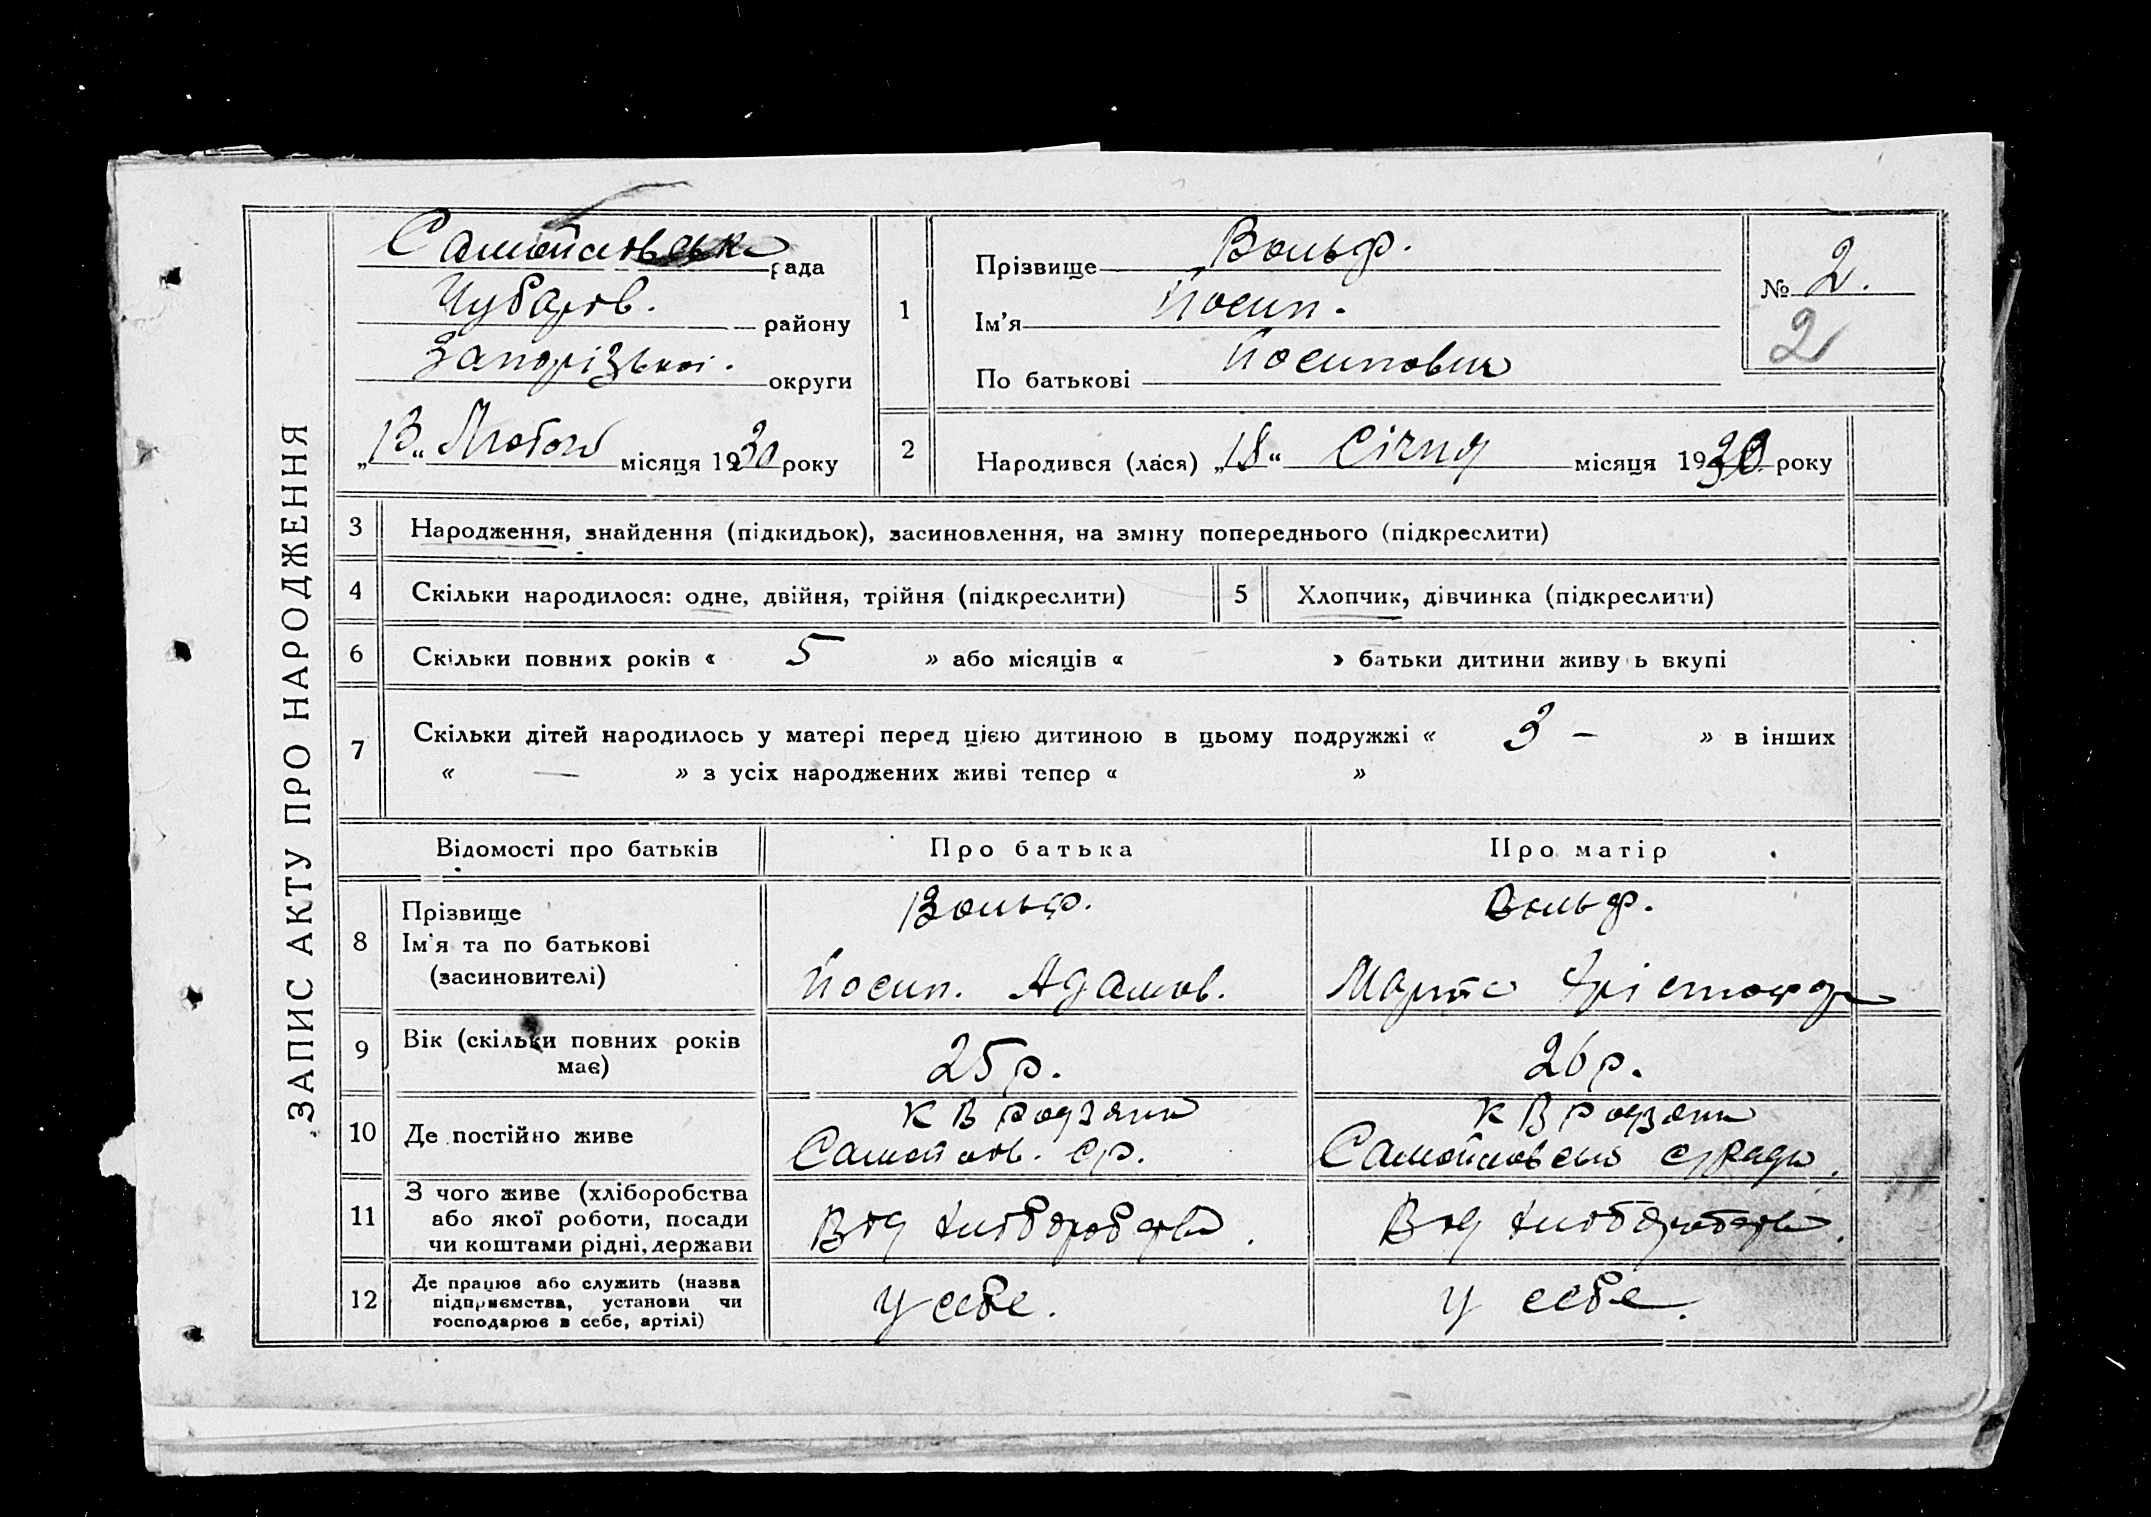 ЗАПИС АКТУ ПРО НАРОДЖЕННЯ
Самойлівська рада
Чубарів. району
Запорізької. округи
„13“ Лютого місяця 1930 року
1
Прізвище Вольф.
Ім'я Йосип.
По батькові Йосипович
№ 2.
2
2 Народився (лася) „18“ Січня місяця 1930 року
3 Народження, знайдення (підкидьок), засиновлення, на зміну попереднього (підкреслити)
4 Скільки народилося: одне, двійня, трійня (підкреслити)
5 Хлопчик, дівчинка (підкреслити)
6 Скільки повних років « 5 » або місяців « » батьки дитини живу ь вкупі
7 Скільки дітей народилось у матері перед цією дитиною в цьому подружжі « 3 – » в інших
« — » з усіх народжених живі тепер « »
Відомості про батьків Про батька Про матір
8 Прізвище
Ім'я та по батькові
(засиновителі)
Вольф.
Йосип. Адамов.
Вольф.
Марта Хрістофор
9 Вік (скільки повних років
має)
25 р.
26 р.
10 Де постійно живе
к В Родзянки
Самойлів. ср.
к В Родзянки
Самойлівська с/ради.
11 З чого живе (хліборобства
або якої роботи, посади
чи коштами рідні, держави
Від хліборобства.
Від хліборобства.
12 Де працює або служить (назва
підприємства, установи чи
господарює в себе, артілі)
у себе.
у себе.